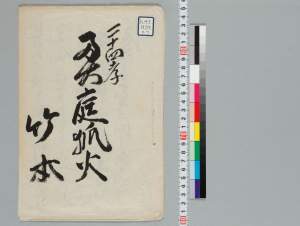 二十四孝
奥庭狐火
竹本